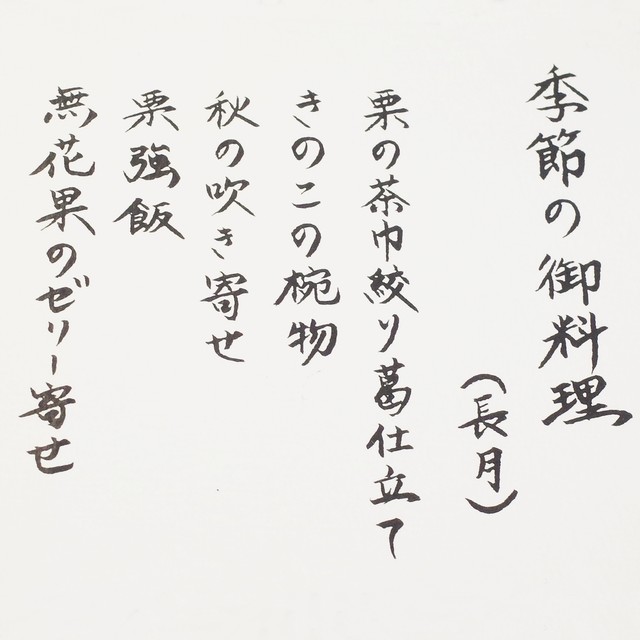 季節の御料理
(長月)
栗の茶巾絞り葛仕立て
きのこの椀物
秋の吹き寄せ
栗強飯
無花果のゼリー寄せ